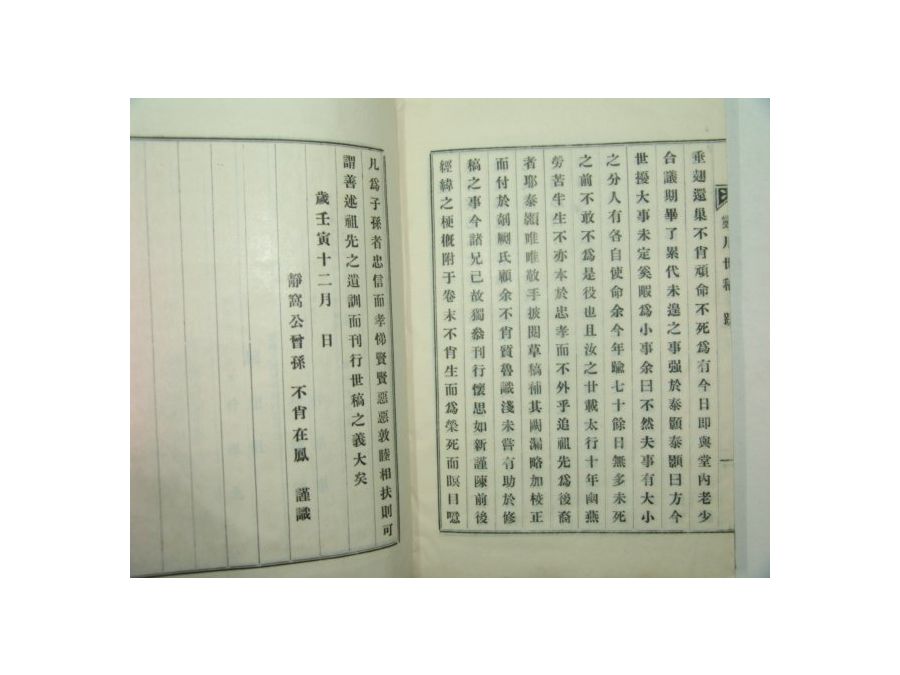 垂翅還巢不肖頑命不死爲有今日即與堂內老少
台議期畢了累代未遑之事强於泰顯泰顯曰方今
世擾大事未定奚暇爲小事余曰不然夫事有大小
之分人有各自使命余今年踰七十餘日無多未死
之前不敢不爲是役也且汝之廿載太行十年幽燕
勞苦半生不亦本於忠孝而不外乎追祖先爲後裔
者耶泰顯唯唯敬手披閱草稿補其闕漏略加校正
而付於剞劂氏顧余不肖質魯識淺未嘗有助於修
稿之事今諸兄已故獨叅刊行懷思如新謹陳前後
經緯之梗槪附于卷末不肖生而爲榮死而瞑目噫
凡爲子孫者忠信而孝悌賢賢惡惡敦睦相扶則可
謂善述祖先之遺訓而刊行世稿之義大矣
歲壬寅十二月 日
靜窩公曾孫 不肖在鳳 謹識